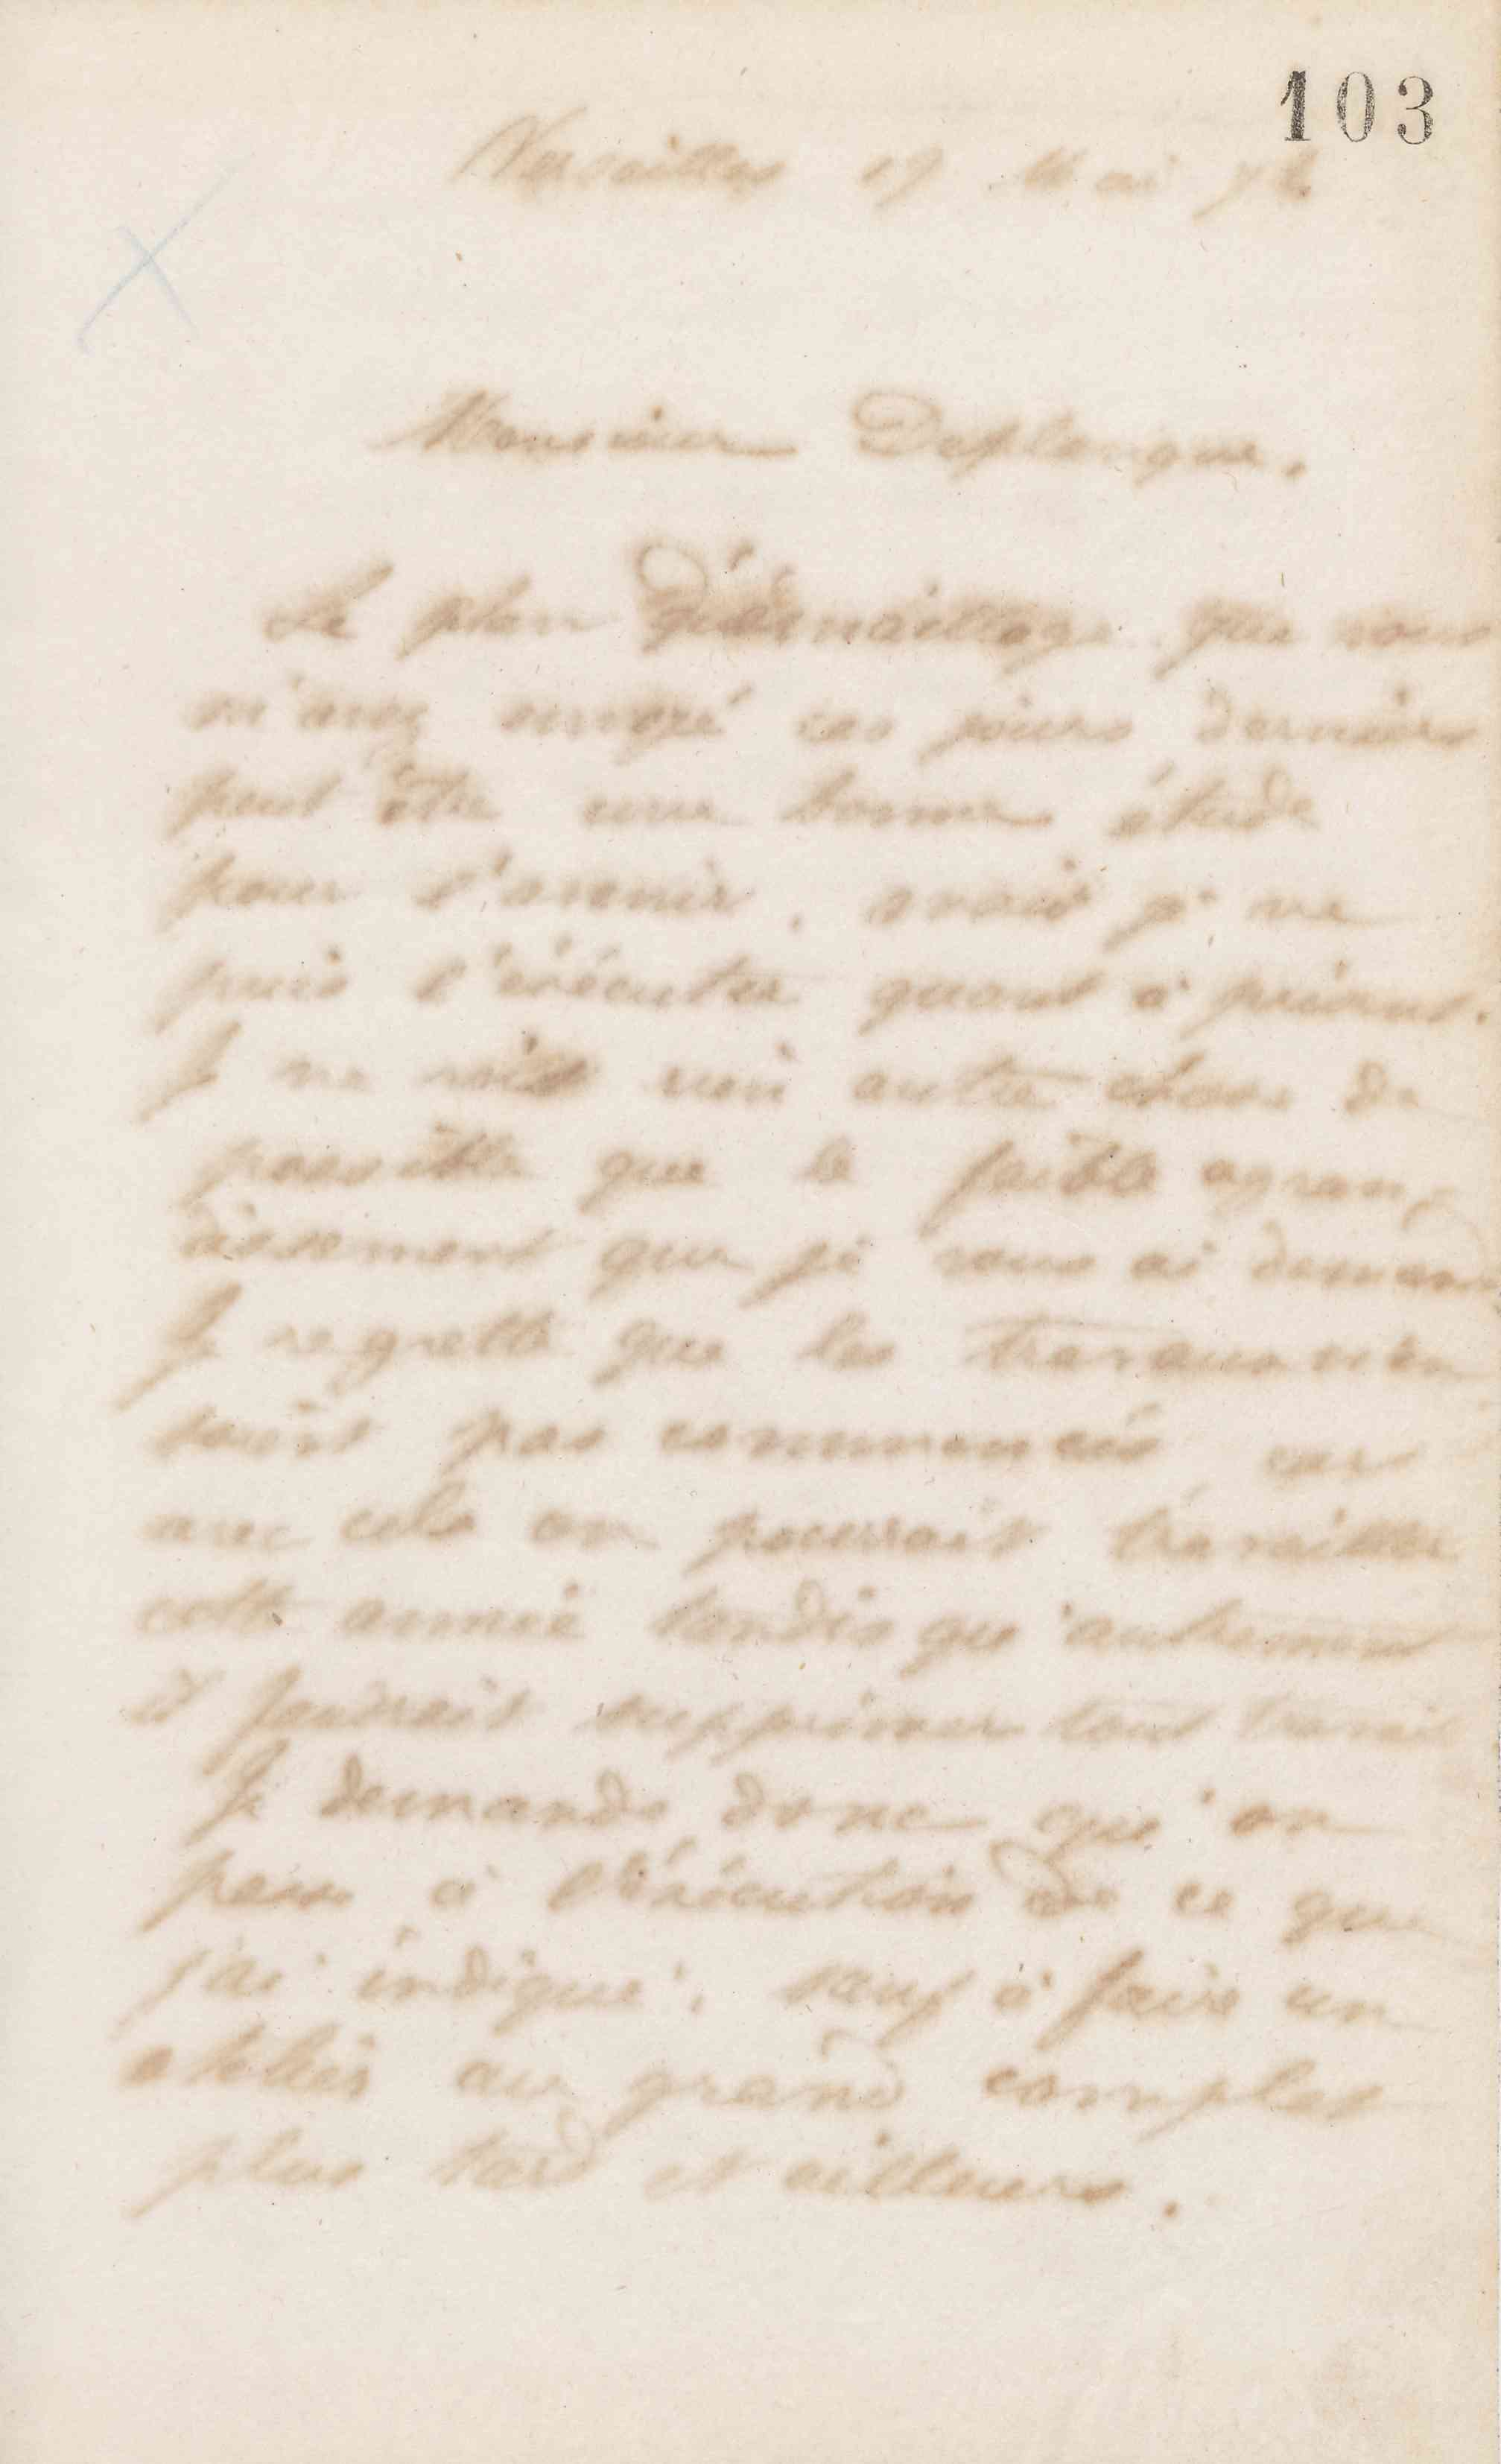 103
Versailles 19 Mai 72
Monsieur Deplanque.
Le plan d'émaillage que vous
m'avez envoyé ces jours derniers
peut être une bonne étude
pour l'avenir, mais je ne
puis l'exécuter quant à présent.
Je ne vois rien autre chose de
possible que le faible agran-
dissement que je vous ai demandé
Je regrette que les travaux n'en
soient pas commencés car
avec cela on pourrait travailler
cette année tandis qu'autrement
il faudrait supprimer tout travail
Je demande donc qu'on
passe à l'exécution de ce que
j'ai indiqué, sauf à faire un
atelier au grand complet
plus tard et ailleurs.